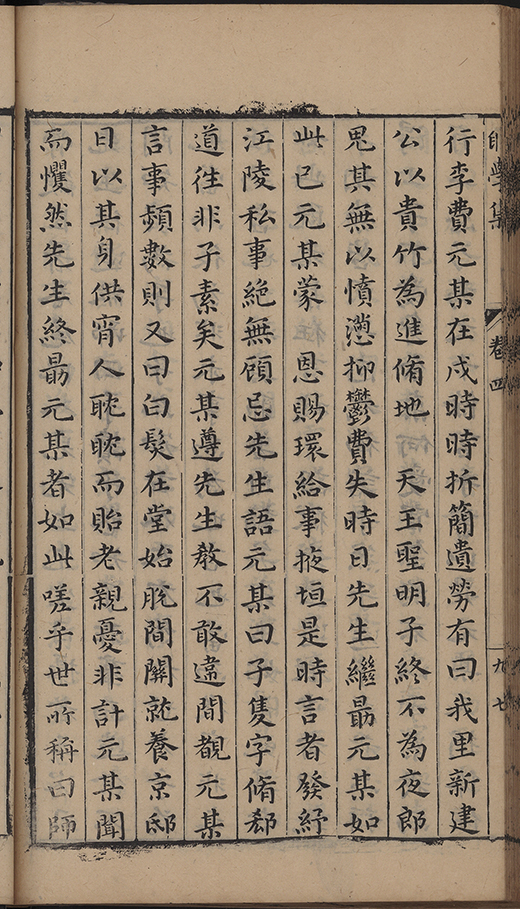 學集
卷四
九七
行李費元某在戍時時折簡遺勞有曰我里新建
公以貴竹為進脩地 天王聖明子終不為夜郎
鬼其無以憤懣抑鬱費失時日先生繼朂元某如
此已元某蒙 恩賜環給事掖垣是時言者發紓
江陵私事絕無顧忌先生語元某曰子隻字脩郄
道徃非子素矣元某遵先生教不敢違間覩元某
言事頻數則又曰白髮在堂始脫間關就養京邸
日以其身供宵人耽耽而貽老親憂非計元某聞
而懼然先生終朂元某者如此嗟乎世所稱曰師